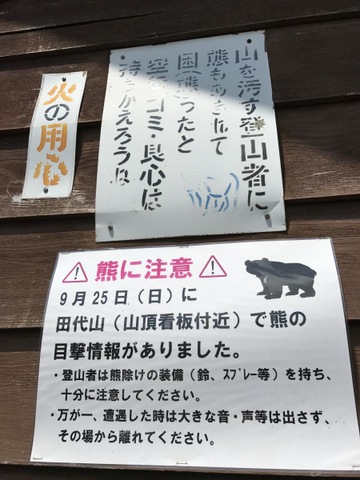 山を汚す登山者に
熊もあきれて
困(熊)ったと
空カンゴミ・良心は
持ちかえろうね
火の用心
熊に注意
9月25日（日）に
田代山（山頂看板付近）で熊の
目撃情報がありました。
・登山者は熊除けの装備（鈴、ｽﾌﾟﾚｰ等）を持ち、
十分に注意してください。
・万が一、遭遇した時は大きな音・声等は出さず、
その場から離れてください。